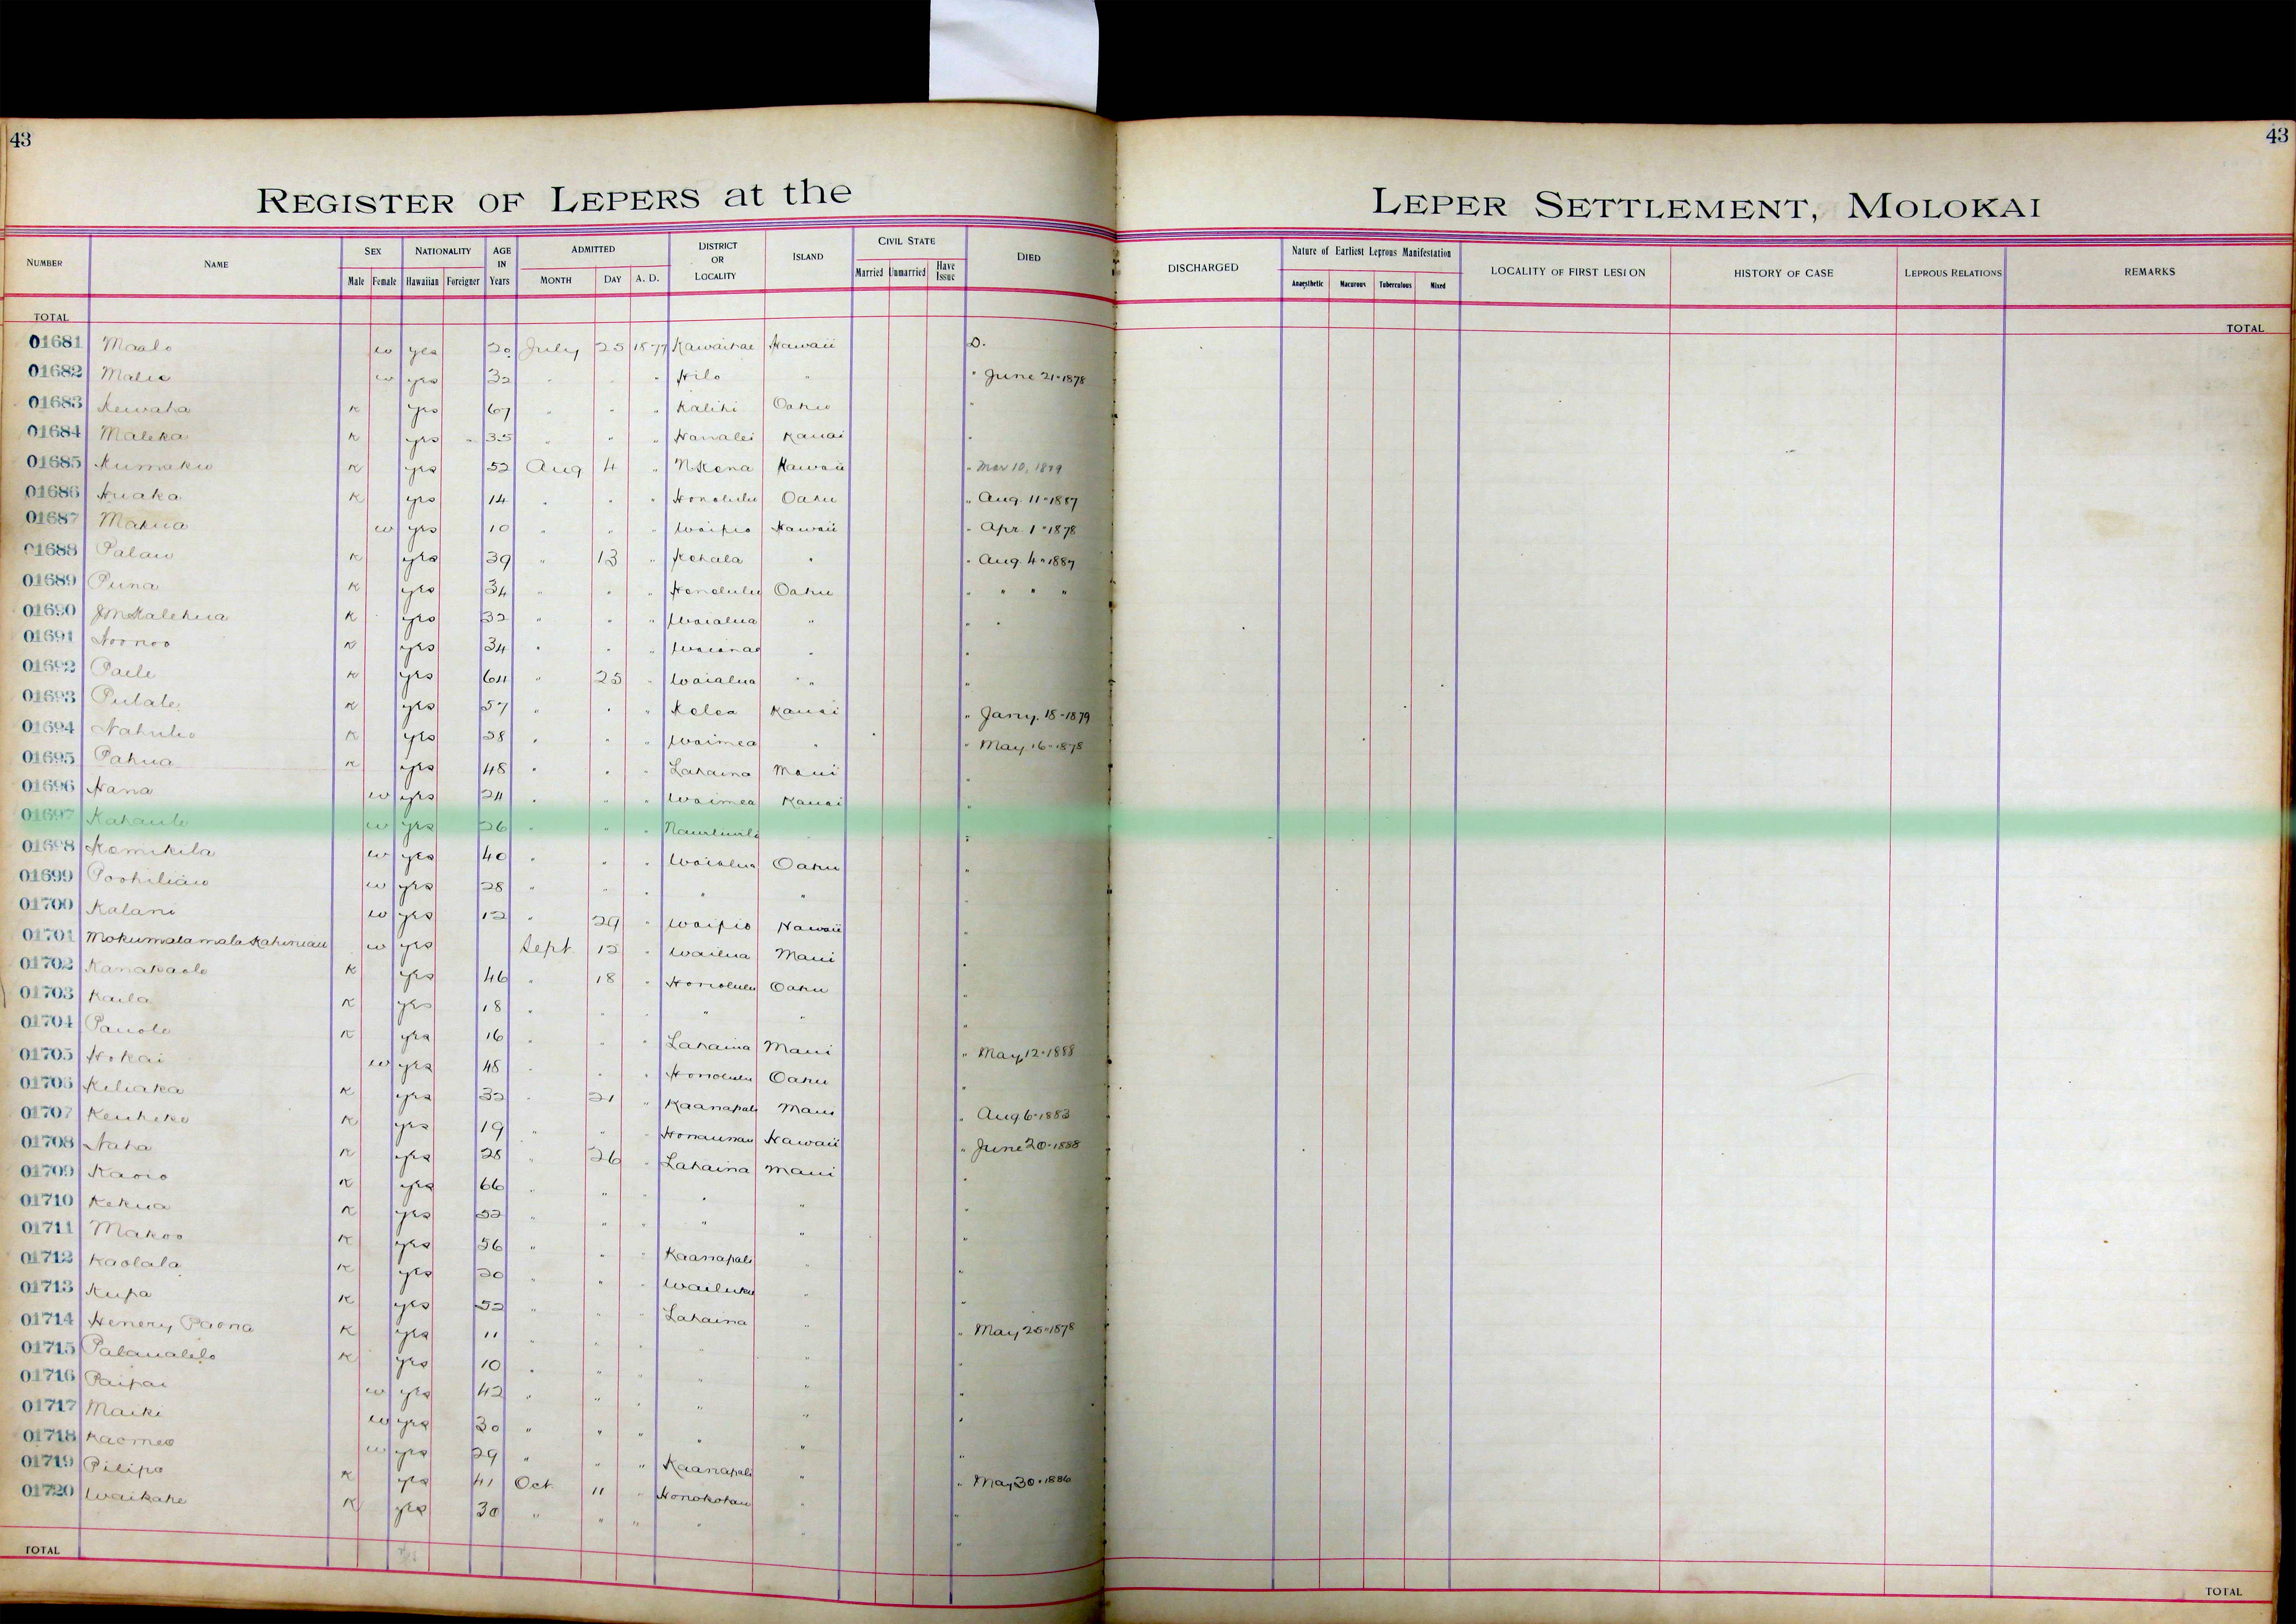 43
43
REGISTER OF LEPERS at the
LEPER SETTLEMENT, MOLOKAI
NUMBER NAME SEX Male Female NATIONALITY Hawaiian Foreigner AGE IN Years ADMITTED MONTH DAY A. D. DISTRICT OR LOCALITY ISLAND CIVIL STATE Married Unmarried Have Issue DIED
DISCHARGED Nature of Earliest Leprous Manifestation Anaesthetic Macurous Tuberculous Mixed LOCALITY OF FIRST LESION HISTORY OF CASE LEPROUS RELATIONS REMARKS
TOTAL TOTAL
01681 Maalo w yes 20 July 25 1877 Kawaihae Hawaii D.
01682 Malie w yes 32 " " " Hilo " " June 21-1878
01683 Kewaha K yes 67 " " " Kalihi Oahu "
01684 Maleka K yes 35 " " " Hanalei Kauai "
01685 Kumaku K yes 52 Aug 4 " N Kona Hawaii " Mar 10, 1879
01686 Huaka K yes 14 " " " Honolulu Oahu " Aug. 11-1887
01687 Makua w yes 10 " " " Waipio Hawaii " Apr. 1-1878
01688 Palau K yes 39 " 13 " Kohala " " Aug. 4-1887
01689 Puna K yes 34 " " " Honolulu Oahu " " " "
01690 J M Kalehua K yes 32 " " " Waialua " " "
01691 Noonoo K yes 34 " " " Waianae " "
01692 Paele K yes 64 " 25 " Waialua " "
01693 Pulale K yes 57 " " " Kolea Kauai " Jany. 18-1879
01694 Nahulu K yes 28 " " " Waimea " " May 16-1878
01695 Pahua K yes 48 " " " Lahaina Maui "
01696 Hana w yes 24 " " " Waimea Kauai "
01697 Kahaule w yes 26 " " " Nawiliwili "
01698 Kamikila w yes 40 " " " Waialua Oahu "
01699 Poohiliau w yes 28 " " " " "
01700 Kalani w yes 12 " 29 " Waipio Hawaii
01701 Mokumalamala Kahiniau w yes Sept 12 " Wailua Maui "
01702 Kanakaole K yes 46 " 18 " Honolulu Oahu "
01703 Kaila K yes 18 " " " " " "
01704 Pauole K yes 16 " " " Lahaina Maui "
01705 Hokai w yes 48 " " " Honolulu Oahu " May 12-1888
01706 Keliaka K yes 32 " 21 " Kaanapali Maui "
01707 Keuheke K yes 19 " " " Honaunau Hawaii " Aug 6-1883
01708 Naha K yes 28 " 26 " Lahaina Maui " June 20-1888
01709 Kaoio K yes 66 " " " " " "
01710 Kekua K yes 52 " " " " " "
01711 Makoo K yes 56 " " " Kaanapali " "
01712 Kaolala K yes 20 " " " Wailuku " "
01713 Kupa K yes 52 " " " Lahaina " "
01714 Henery Paona K yes 11 " " " " " " May 25-1878
01715 Palaualelo K yes 10 " " " " " "
01716 Paipai w yes 42 " " " " " "
01717 Maiki w yes 30 " " " " " "
01718 Kaomeo w yes 29 " " " Kaanapali " "
01719 Pilipo K yes 41 Oct 11 " Honokohau " " May 30-1886
01720 Waikahe K yes 30 " " " " " "
TOTAL TOTAL